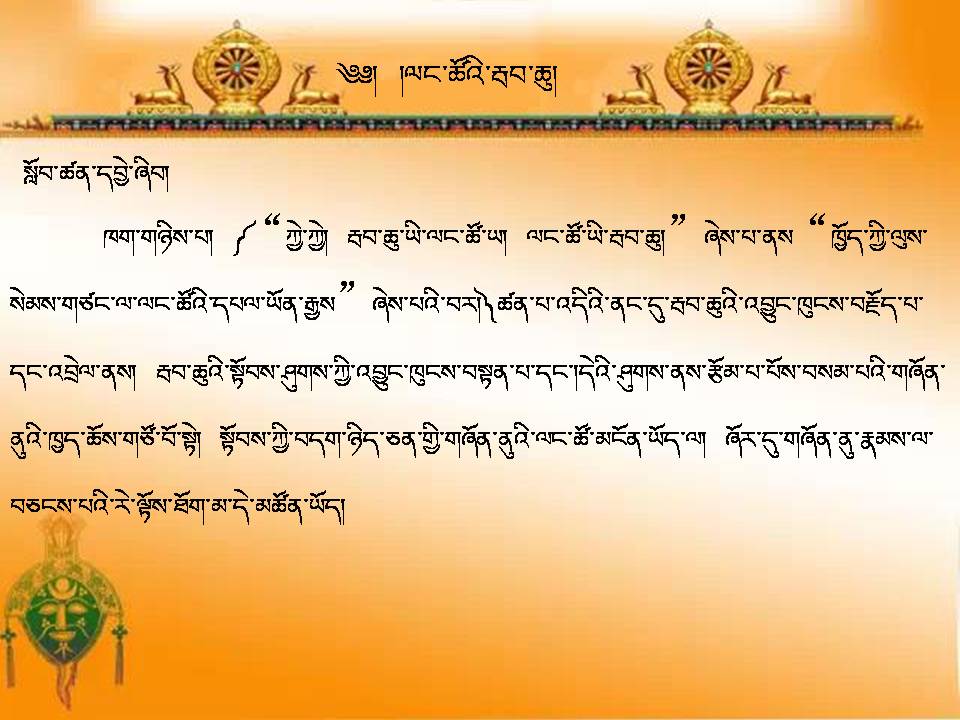 ༄༅། །ལང་ཚོའི་རྦབ་ཆུ།
སློབ་ཚན་དབྱེ་ཞིབ།
ཁག་གཉིས་པ། ༼“ཀྱེ་ཀྱེ། རྦབ་ཆུ་ཡི་ལང་ཚོ་ཡ། ལང་ཚོ་ཡི་རྦབ་ཆུ།” ཞེས་པ་ནས “ཁྱོད་ཀྱི་ལུས་
སེམས་གཙང་ལ་ལང་ཚོའི་དཔལ་ཡོན་རྒྱས” ཞེས་པའི་བར།༽ཚན་པ་འདིའི་ནང་དུ་རྦབ་ཆུའི་འབྱུང་ཁུངས་བརྗོད་པ་
དང་འབྲེལ་ནས། རྦབ་ཆུའི་སྟོབས་ཤུགས་ཀྱི་འབྱུང་ཁུངས་བསྟན་པ་དང་།དེའི་ཤུགས་ནས་རྩོམ་པ་པོས་བསམ་པའི་གཞོན་
ནུའི་ཁྱད་ཆོས་གཙོ་བོ་སྟེ། སྟོབས་ཀྱི་བདག་ཉིད་ཅན་གྱི་གཞོན་ནུའི་ལང་ཚོ་མངོན་ཡོད་ལ། ཞོར་དུ་གཞོན་ནུ་རྣམས་ལ་
བཅངས་པའི་རེ་ལྟོས་ཐོག་མ་དེ་མཚོན་ཡོད།